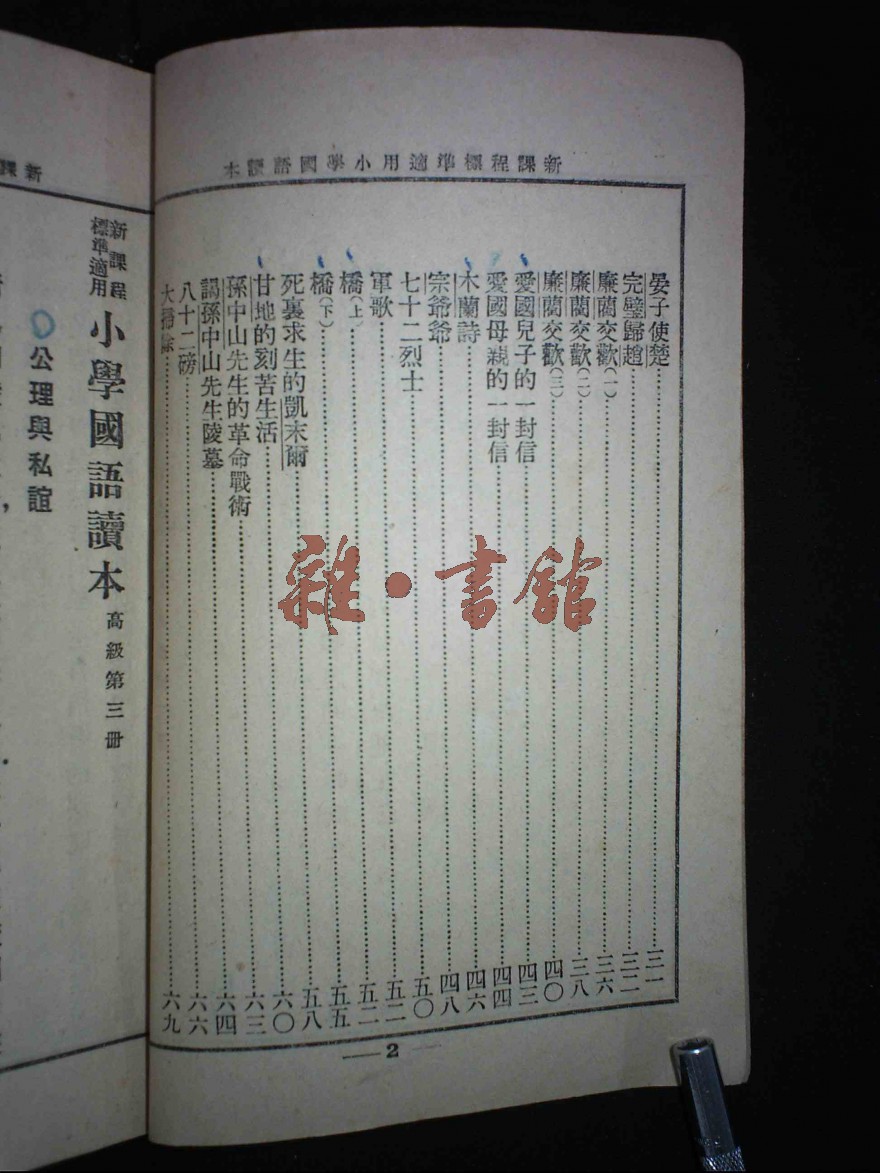 新課程標準適用小學國語讀本
晏子使楚…………三一
完璧歸趙…………三二
廉藺交歡(一)…………三六
廉藺交歡(二)…………三八
廉藺交歡(三)…………四〇
愛國兒子的一封信…………四三
愛國母親的一封信…………四四
木蘭詩…………四六
宗爺爺…………四八
七十二烈士…………五〇
軍歌…………五二
橋(上)…………五二
橋(下)…………五五
死裏求生的凱末爾…………五八
甘地的刻苦生活…………六〇
孫中山先生的革命戰術…………六三
謁孫中山先生陵墓…………六四
八十二磅…………六六
大掃除…………六九
2
雜·書館
新課
新課程
標準適用
小學國語讀本
高級第三册
公理與私誼